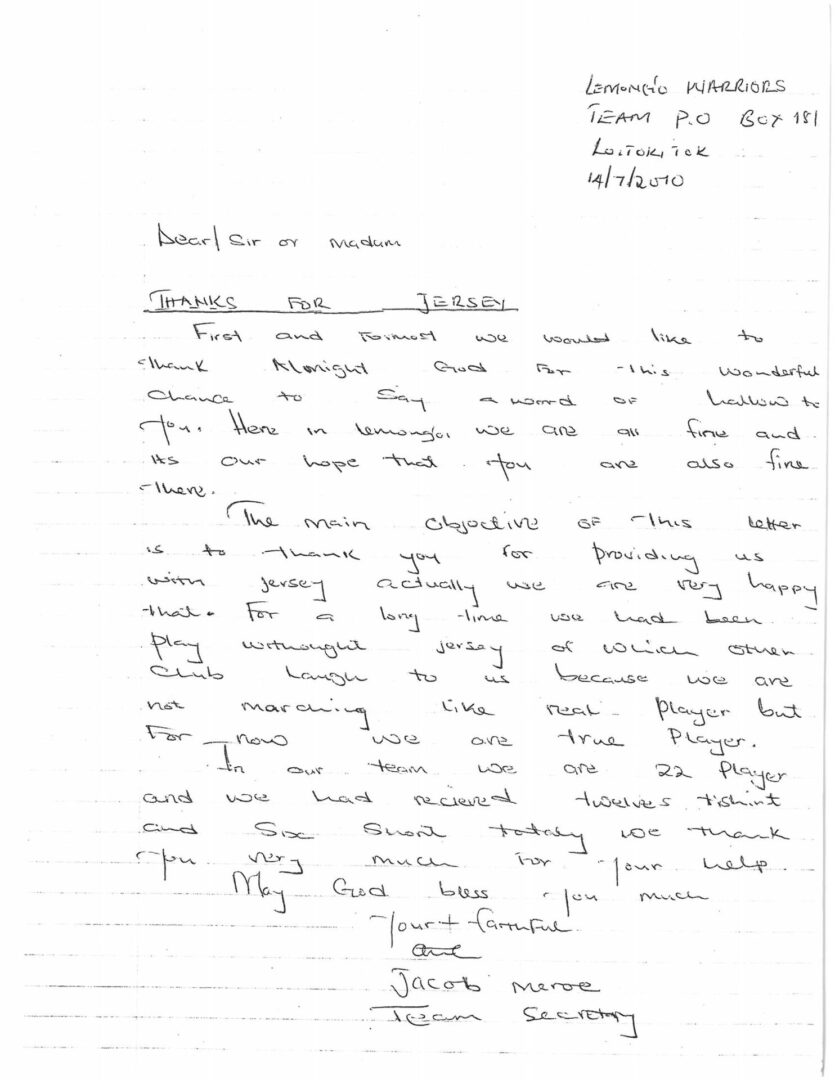 LEMONGO WARRIORS
TEAM P.O BOX 181
LOITOKITOK
14/7/2010
Dear/ Sir or madam
THANKS FOR JERSEY
First and Formost we would like to
thank Almight God For this wonderful
chance to say a word of hallow to
you. Here in lemongo, we are all fine and
its our hope that you are also fine
there.
The main objective of this letter
is to thank you for providing us
with jersey actually we are very happy
that. For a long time we had been
play withought jersey of which other
club laugh to us because we are
not marching like real player but
For now we are true Player.
In our team we are 22 Player
and we had recieved twelves tishirt
and Six Short totaly we thank
you very much for your help.
May God bless you much
your faithful
Jacob Meroe
Team Secretary